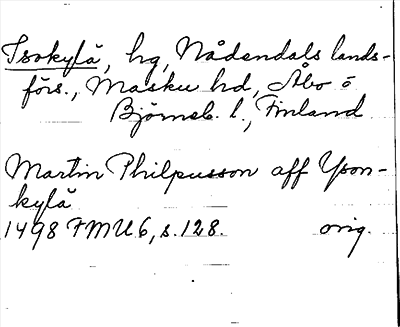 Isokylä, hg, Nådendals lands-
förs., Masku hd, Åbo ö
Björneb. l., Finland
Martin Philpusson aff Yson-
kylä
1498 FMU 6, s. 128. orig.